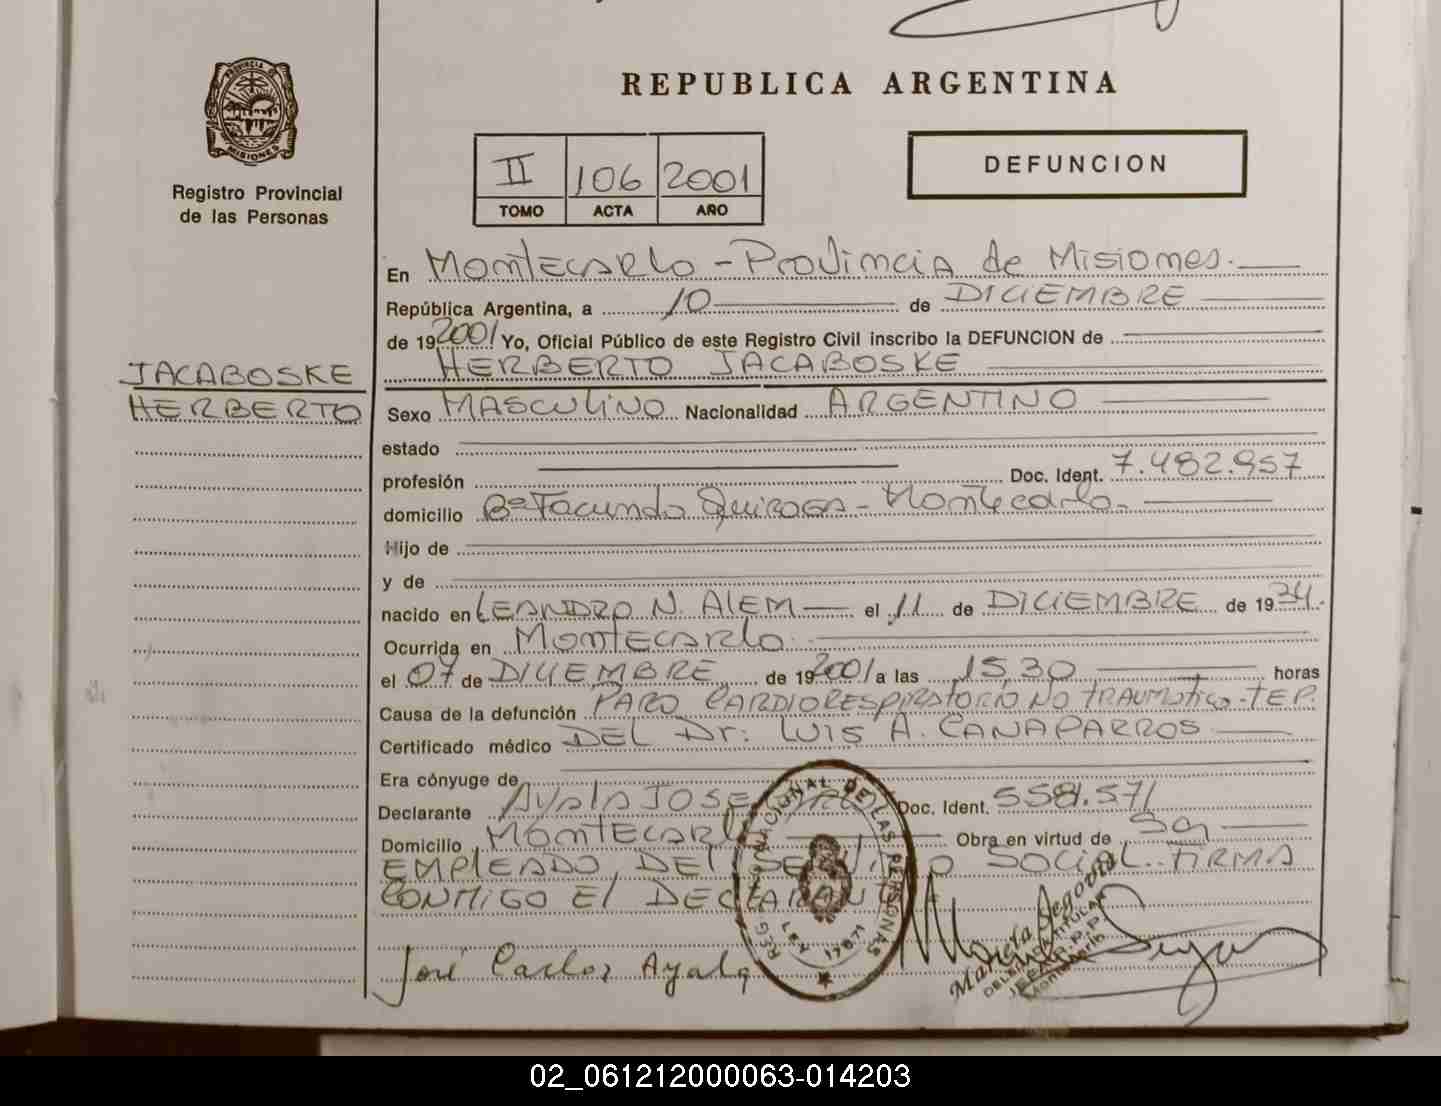 REPUBLICA ARGENTINA
PROVINCIA DE
MISIONES
Registro Provincial
de las Personas
II 106 2001
TOMO ACTA AÑO
DEFUNCION
En Montecarlo - Provincia de Misiones.
República Argentina, a 10 de DICIEMBRE
de 19 2001 Yo, Oficial Público de este Registro Civil inscribo la DEFUNCION de
HERBERTO JACABOSKE
JACABOSKE
HERBERTO
Sexo MASCULINO Nacionalidad ARGENTINO
estado
profesión Doc. Ident. 7.482.957
domicilio Bº Facundo Quiroga - Montecarlo.
Hijo de
y de
nacido en LEANDRO N. ALEM el 11 de DICIEMBRE de 1934.
Ocurrida en MONTECARLO.
el 07 de DICIEMBRE de 19 2001 a las 15,30 horas
Causa de la defunción PARO CARDIORESPIRATORIO NO TRAUMÁTICO - TEP.
Certificado médico DEL Dr: LUIS A. CANAPARROS
Era cónyuge de
Declarante AYALA JOSE Doc. Ident.
Domicilio MONTECARLO Obra en virtud de
EMPLEADO DEL SERVICIO SOCIAL. FIRMA
CONMIGO El DECLARANTE
José Carlos Ayala
REG. NACIONAL DE LAS PERSONAS
LEY 17671
Mariela Segovia
DELEGADA TITULAR
Montecarlo
02_061212000063-014203